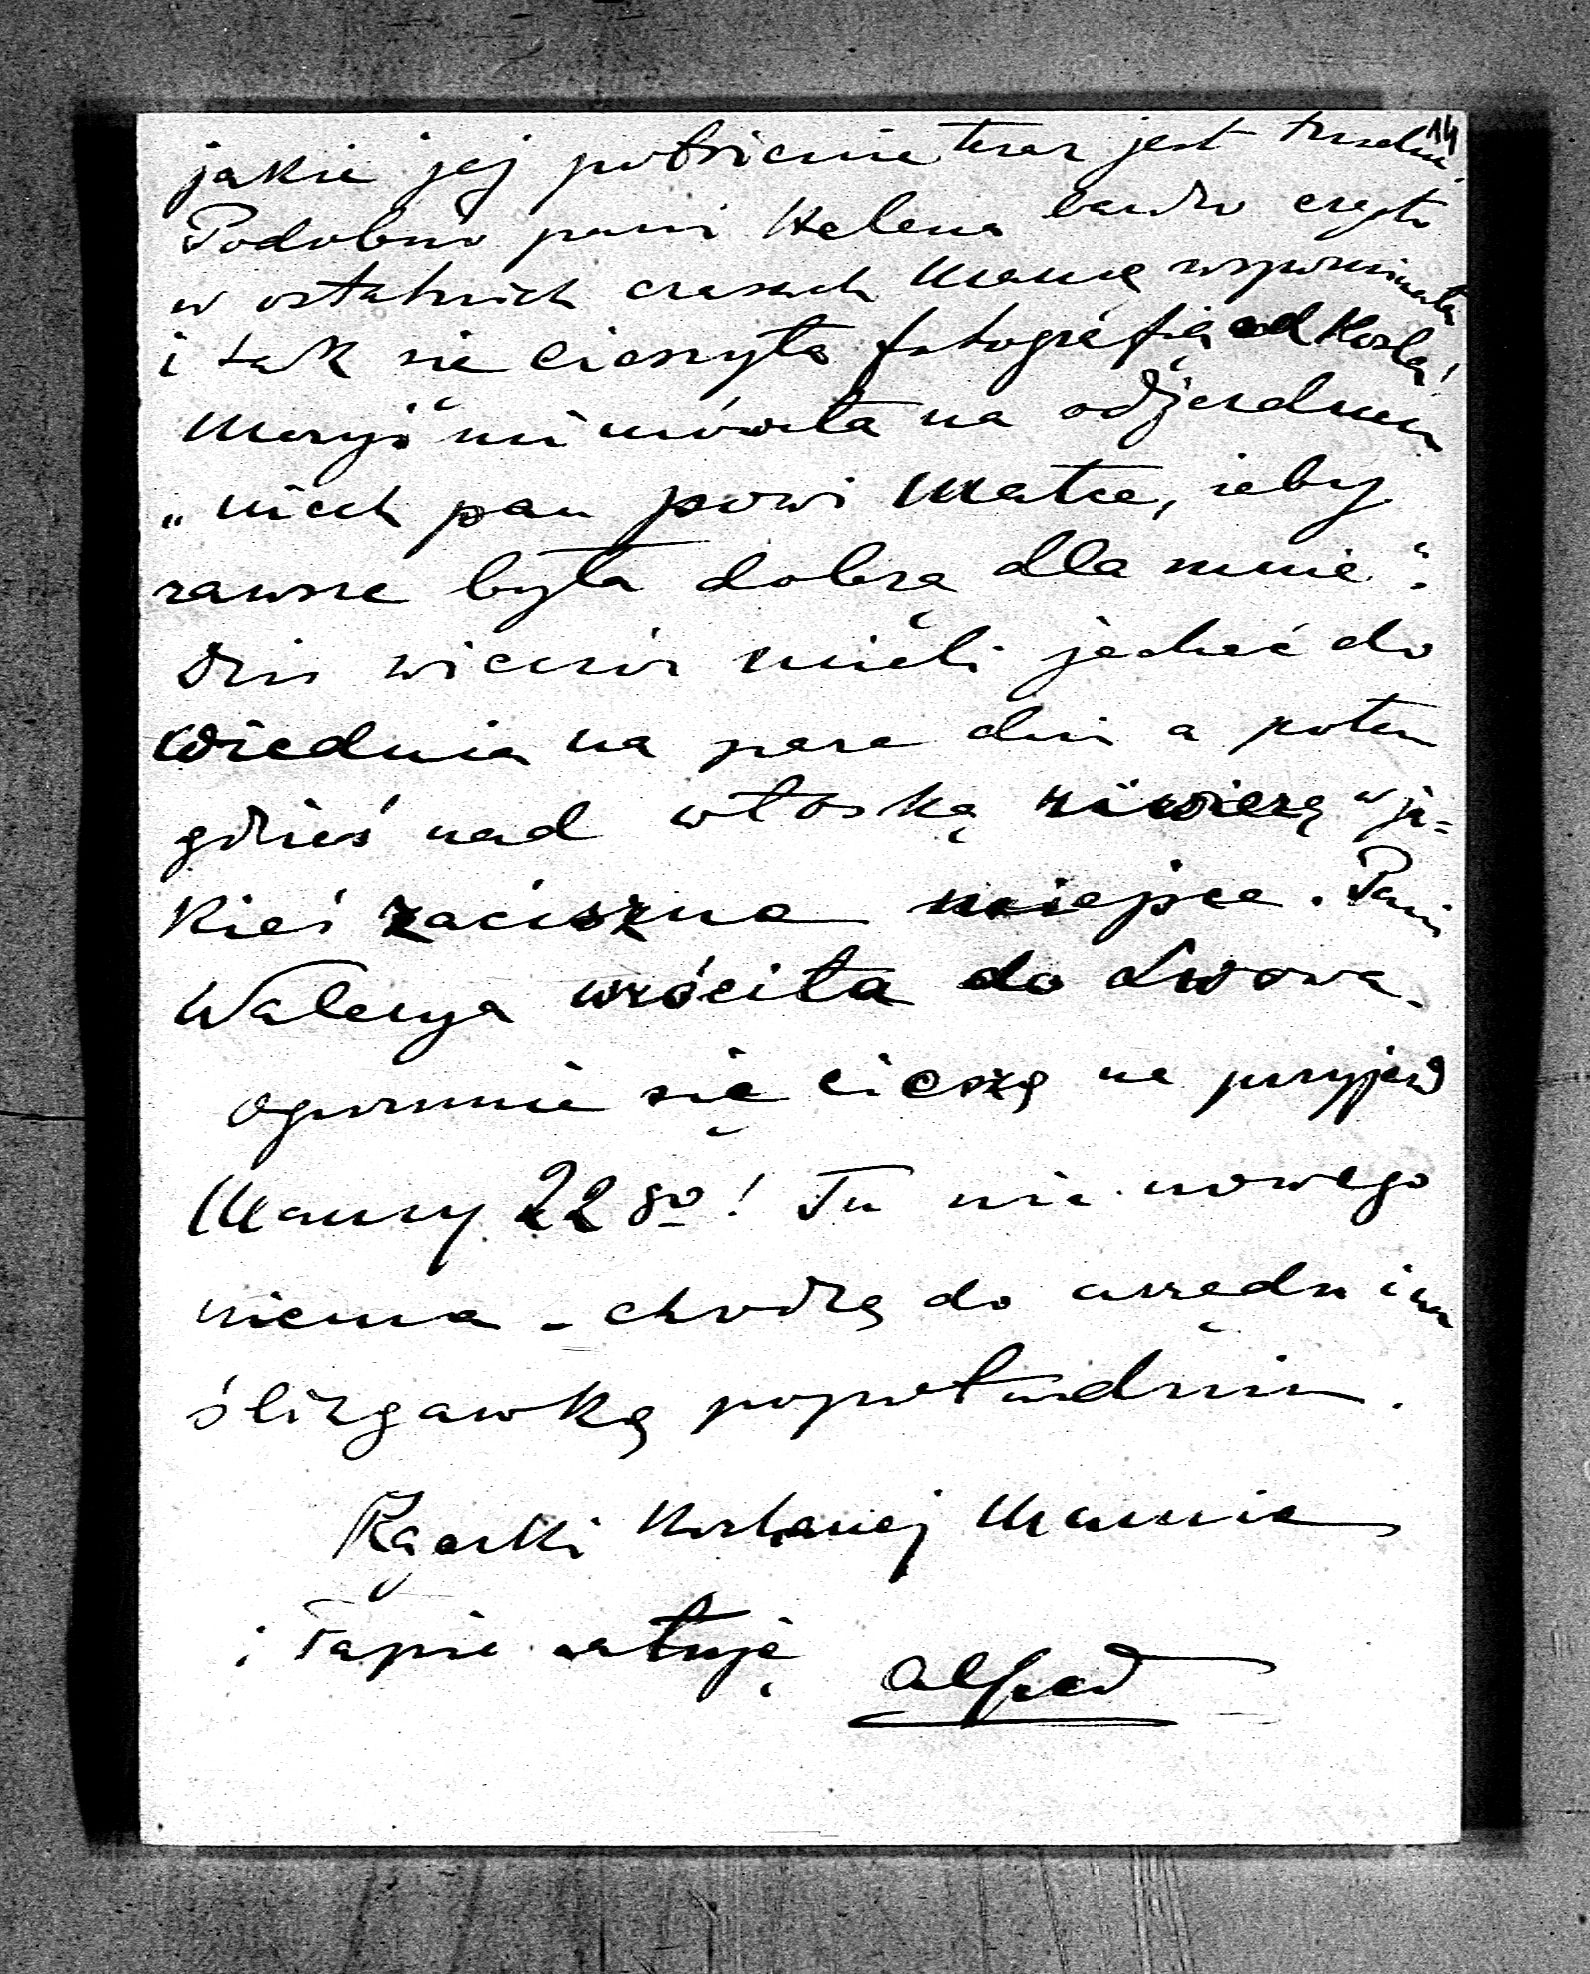 14
jakie jej położenie teraz jest trudne.
Podobno pani Helena bardzo często
w ostatnich czasach Mamę wspominała
i tak się cieszyła fotografią od
Maryś mi mówiła na odjezdnem
„niech pan powi Matce, żeby
zawsze była dobrą dla mnie".
Dziś wieczór mieli jechać do
Wiednia na parę dni a potem
gdzieś nad włoską rivierę w ja=
kieś zaciszne miejsce. Pani
Walerya wróciła do Lwowa.
Ogromnie się cieszę na przyjazd
Mamy 22go! Tu nic nowego
niema - chodzę do urzędu i na
ślizgawkę popołudniu.
Rączki Kochanej Mamie
i Papie całuję
Alfred